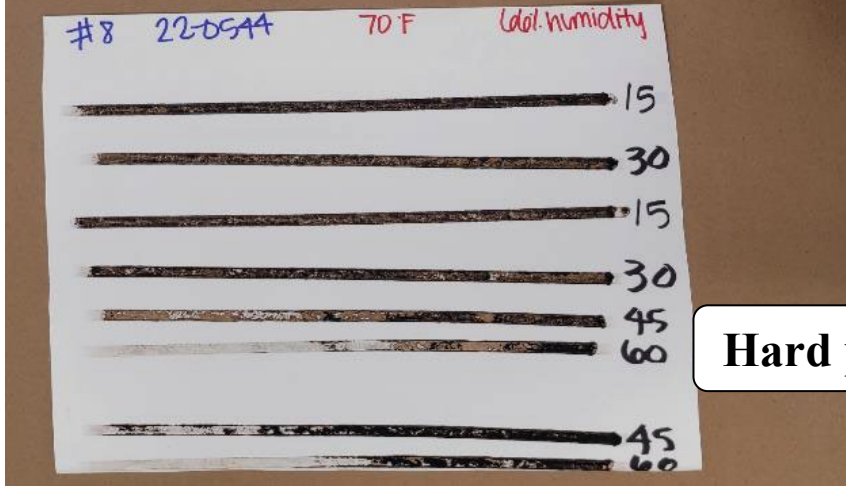 #8 22-0544 70°F humidity
15
30
15
30
45
60
Hard
45
60